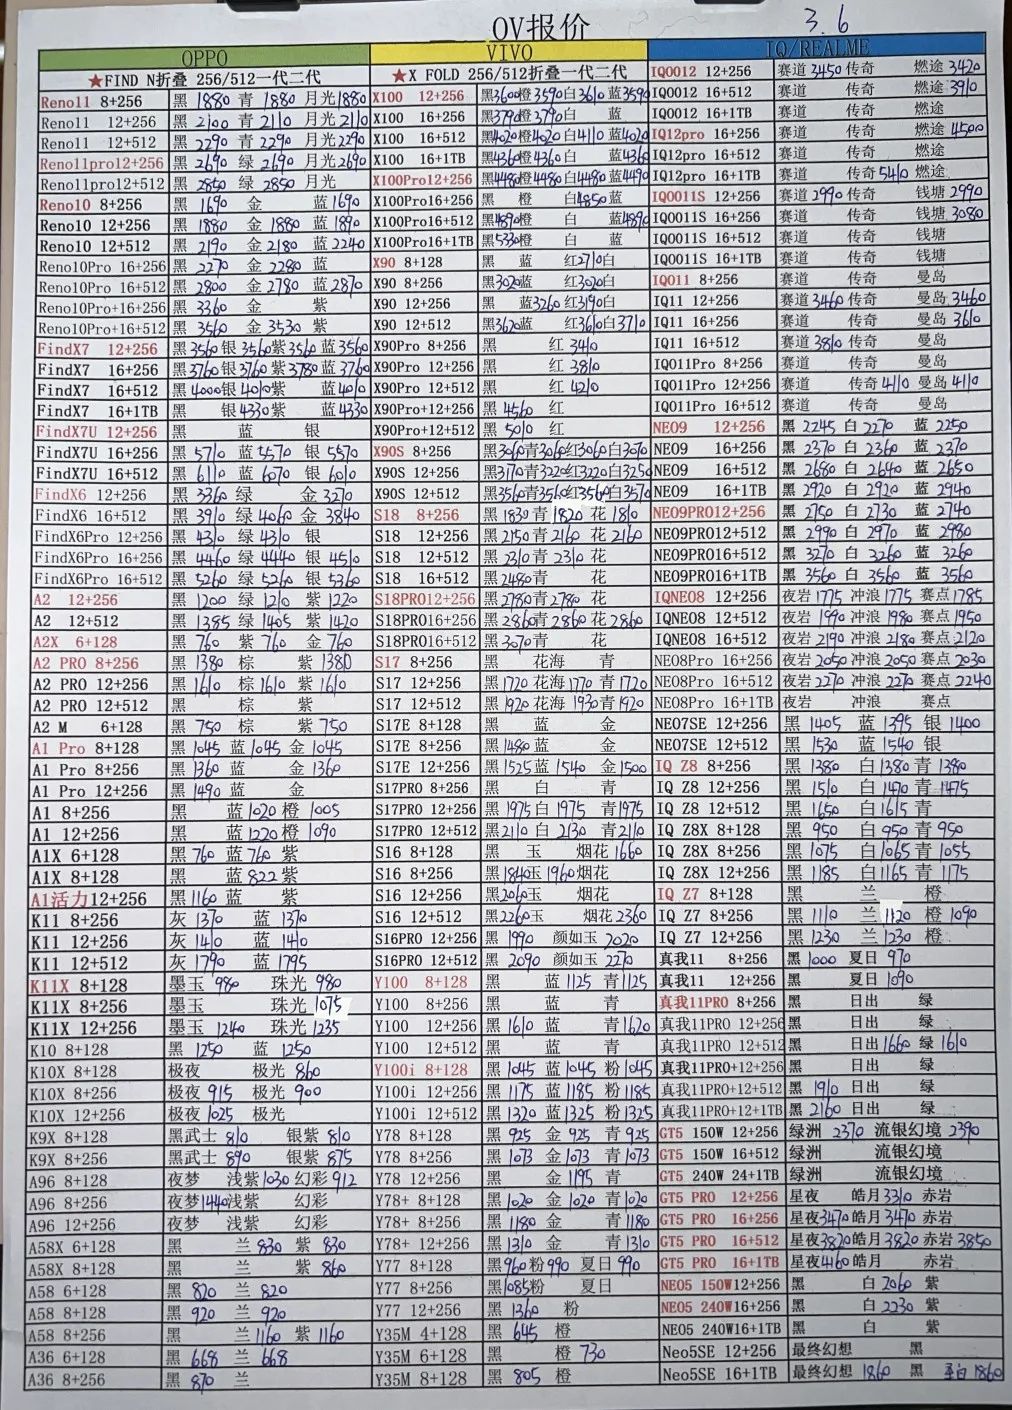 3.6
OV报价
OPPO VIVO IQ/REALME
★FIND N折叠 256/512一代二代 ★X FOLD 256/512折叠一代二代 IQOO12 12+256 赛道3450传奇 燃途3420
Reno11 8+256 黑 1880 青 1880 月光1880 X100 12+256 黑3600橙3590白3610蓝3590 IQOO12 16+512 赛道 传奇 燃途3910
Reno11 12+256 黑 2100 青 2110 月光2110 X100 16+256 黑3790橙3790白 蓝 IQOO12 16+1TB 赛道 传奇 燃途
Reno11 12+512 黑 2290 青 2290 月光2290 X100 16+512 黑4020橙4020白4110蓝4020 IQ12pro 16+256 赛道 传奇 燃途4500
Reno11pro12+256 黑 2690 绿 2690 月光2690 X100 16+1TB 黑4360橙4360白 蓝4360 IQ12pro 16+512 赛道 传奇 燃途
Reno11pro12+512 黑 2850 绿 2850 月光 X100Pro12+256 黑4480橙4480白4480蓝4490 IQ12pro 16+1TB 赛道 传奇5410 燃途
Reno10 8+256 黑 1690 金 蓝1690 X100Pro16+256 黑 橙 白4850蓝 IQOO11S 12+256 赛道2990传奇 钱塘2990
Reno10 12+256 黑 1880 金 1880 蓝 1890 X100Pro16+512 黑4890橙 白 蓝4890 IQOO11S 16+256 赛道 传奇 钱塘3080
Reno10 12+512 黑 2190 金 2180 蓝 2240 X100Pro16+1TB 黑5330橙 白 蓝 IQOO11S 16+512 赛道 传奇 钱塘
Reno10Pro 16+256 黑 2270 金 2280 蓝 X90 8+128 黑 蓝 红2710白 IQOO11S 16+1TB 赛道 传奇 钱塘
Reno10Pro 16+512 黑 2800 金 2780 蓝 2870 X90 8+256 黑3020蓝 红3020白 IQO11 8+256 赛道 传奇 曼岛
Reno10Pro+16+256 黑 3360 金 紫 X90 12+256 黑 蓝3260红3190白 IQ11 12+256 赛道3460传奇 曼岛3460
Reno10Pro+16+512 黑 3560 金 3530 紫 X90 12+512 黑3620蓝 红3610白3710 IQ11 16+256 赛道 传奇 曼岛3610
FindX7 12+256 黑3560银3560紫3560蓝3560 X90Pro 8+256 黑 红 3410 IQ11 16+512 赛道3810传奇 曼岛
FindX7 16+256 黑3760银3760紫3780蓝3760 X90Pro 12+256 黑 红 3810 IQO11Pro 8+256 赛道 传奇 曼岛
FindX7 16+512 黑4000银4010紫 蓝4010 X90Pro 12+512 黑 红 4210 IQO11Pro 12+256 赛道 传奇4110曼岛4110
FindX7 16+1TB 黑 银4330紫 蓝4330 X90Pro+12+256 黑 4560 红 IQO11Pro 16+512 赛道 传奇 曼岛
FindX7U 12+256 黑 蓝 银 X90Pro+12+512 黑 5010 红 NEO9 12+256 黑 2245 白 2270 蓝 2250
FindX7U 16+256 黑 5710 蓝 5570 银 5570 X90S 8+256 黑3060青3060红3060白3070 NEO9 16+256 黑 2370 白 2360 蓝 2370
FindX7U 16+512 黑 6110 蓝 6070 银 6010 X90S 12+256 黑3170青3220红3220白3250 NEO9 16+512 黑 2680 白 2640 蓝 2650
FindX6 12+256 黑 3360 绿 金 3270 X90S 12+512 黑3560青3560红3560白3570 NEO9 16+1TB 黑 2920 白 2920 蓝 2940
FindX6 16+512 黑 3910 绿 4060 金 3840 S18 8+256 黑1830青 1820 花 1810 NEO9PRO12+256 黑 2750 白 2730 蓝 2740
FindX6Pro 12+256 黑 4310 绿 4310 银 S18 12+256 黑2150青2160 花 2160 NEO9PRO12+512 黑 2990 白 2970 蓝 2980
FindX6Pro 16+256 黑 4460 绿 4440 银 4510 S18 12+512 黑2310青2310 花 NEO9PRO16+512 黑 3270 白 3260 蓝 3260
FindX6Pro 16+512 黑 5260 绿 5260 银 5360 S18 16+512 黑2480青 花 NEO9PRO16+1TB 黑 3560 白 3560 蓝 3560
A2 12+256 黑 1200 绿 1210 紫 1220 S18PRO12+256 黑2780青2780 花 IQNEO8 12+256 夜岩1775冲浪1775赛点1785
A2 12+512 黑 1385 绿 1405 紫 1420 S18PRO16+256 黑2860青2860 花2860 IQNEO8 12+512 夜岩1990冲浪1980赛点1950
A2X 6+128 黑 760 紫 760 金 760 S18PRO16+512 黑3070青 花 IQNEO8 16+512 夜岩2190冲浪2180赛点2120
A2 PRO 8+256 黑 1380 棕 紫 1380 S17 8+256 黑 花海 青 NEO8Pro 16+256 夜岩2050冲浪2050赛点2030
A2 PRO 12+256 黑 1610 棕 1610 紫 1610 S17 12+256 黑1720花海1770青1720 NEO8Pro 16+512 夜岩2270冲浪2270赛点2240
A2 PRO 12+512 黑 棕 紫 S17 12+512 黑1920花海1930青1920 NEO8Pro 16+1TB 夜岩 冲浪 赛点
A2 M 6+128 黑 750 棕 紫 750 S17E 8+128 黑 蓝 金 NEO7SE 12+256 黑 1405 蓝 1395 银 1400
A1 Pro 8+128 黑 1045 蓝 1045 金 1045 S17E 8+256 黑1480蓝 金 NEO7SE 12+512 黑 1530 蓝 1540 银
A1 Pro 8+256 黑 1360 蓝 金 1360 S17E 12+256 黑1525蓝 1540 金1500 IQ Z8 8+256 黑 1380 白1380 青 1380
A1 Pro 12+256 黑 1490 蓝 金 S17PRO 8+256 黑 白 青 IQ Z8 12+256 黑 1510 白1470 青 1475
A1 8+256 黑 蓝1020 橙 1005 S17PRO 12+256 黑1975白 1975 青1975 IQ Z8 12+512 黑 1650 白1615 青
A1 12+256 黑 蓝1220 橙 1090 S17PRO 12+512 黑2110 白 2130 青2110 IQ Z8X 8+128 黑 950 白 950 青 950
A1X 6+128 黑 760 蓝 760 紫 S16 8+128 黑 玉 烟花1660 IQ Z8X 8+256 黑 1075 白1065 青 1055
A1X 8+128 黑 蓝822 紫 S16 8+256 黑1840玉 1960烟花 IQ Z8X 12+256 黑 1185 白1165 青 1175
A1活力12+256 黑 1160 蓝 紫 S16 12+256 黑2060玉 烟花 IQ Z7 8+128 黑 兰 橙
K11 8+256 灰 1370 蓝 1370 S16 12+512 黑2260玉 烟花2360 IQ Z7 8+256 黑 1110 兰1120 橙 1090
K11 12+256 灰 1410 蓝 1410 S16PRO 12+256 黑 1990 颜如玉 2020 IQ Z7 12+256 黑 1230 兰1230 橙
K11 12+512 灰 1790 蓝 1795 S16PRO 12+512 黑 2090 颜如玉 2270 真我11 8+256 黑 1000 夏日 970
K11X 8+128 墨玉 980 珠光 980 Y100 8+128 黑 蓝 1125 青1125 真我11 12+256 黑 夏日 1090
K11X 8+256 墨玉 珠光 1075 Y100 8+256 黑 蓝 青 真我11PRO 8+256 黑 日出 绿
K11X 12+256 墨玉 1240 珠光 1235 Y100 12+256 黑 1610 蓝 青1620 真我11PRO 12+256 黑 日出 绿
K10 8+128 黑 1250 蓝 1250 Y100 12+512 黑 蓝 青 真我11PRO 12+512 黑 日出1660 绿 1610
K10X 8+128 极夜 极光 860 Y100i 8+128 黑1045 蓝1045 粉1045 真我11PRO+12+256 黑 日出 绿
K10X 8+256 极夜 915 极光 900 Y100i 12+256 黑1175 蓝1185 粉1185 真我11PRO+12+512 黑 1910 日出 绿
K10X 12+256 极夜 1025 极光 Y100i 12+512 黑1320 蓝1325 粉1325 真我11PRO+12+1TB 黑 2160 日出 绿
K9X 8+128 黑武士 810 银紫 810 Y78 8+128 黑 925 金 925 青 925 GT5 150W 12+256 绿洲 2370 流银幻境 2390
K9X 8+256 黑武士 890 银紫 875 Y78 8+256 黑1073 金 1073 青1073 GT5 150W 16+512 绿洲 流银幻境
A96 8+128 夜梦 浅紫1030 幻彩 912 Y78 12+256 黑 金 1195 青 GT5 240W 24+1TB 绿洲 流银幻境
A96 8+256 夜梦1440浅紫 幻彩 Y78+ 8+128 黑1020 金 1020 青1020 GT5 PRO 12+256 星夜 皓月3310 赤岩
A96 12+256 夜梦 浅紫 幻彩 Y78+ 8+256 黑1180 金 青1180 GT5 PRO 16+256 星夜3470皓月3470 赤岩
A58X 6+128 黑 兰 830 紫 830 Y78+ 12+256 黑1310 金 青1310 GT5 PRO 16+512 星夜3820皓月3820赤岩3850
A58X 8+128 黑 兰 紫 860 Y77 8+128 黑960粉 990 夏日 990 GT5 PRO 16+1TB 星夜4160皓月 赤岩
A58 6+128 黑 820 兰 820 Y77 8+256 黑1085粉 夏日 NEO5 150W12+256 黑 白 2060 紫
A58 8+128 黑 920 兰 920 Y77 12+256 黑 1360 粉 NEO5 240W16+256 黑 白 2230 紫
A58 8+256 黑 兰1160 紫 1160 Y35M 4+128 黑 645 橙 NEO5 240W16+1TB 黑 白 紫
A36 6+128 黑 668 兰 668 Y35M 6+128 黑 橙 730 Neo5SE 12+256 最终幻想 黑
A36 8+256 黑 870 兰 Y35M 8+128 黑 805 橙 Neo5SE 16+1TB 最终幻想 1860 黑 白1860